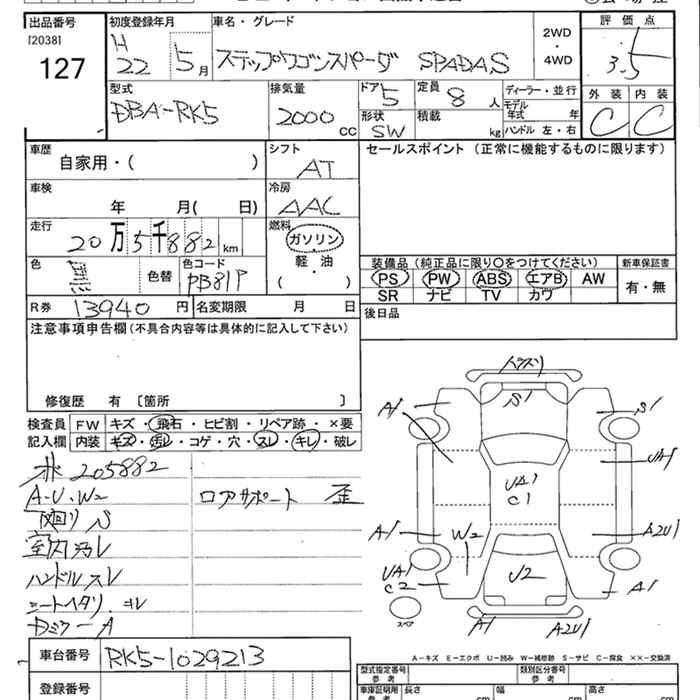 出品番号 初度登録年月 車名・グレード 2WD・4WD 評価点
[2038]
127
H 22 5月 ステップワゴンスパーダ SPADAS 3.5
型式 排気量 ドア 5 定員 8人 ディーラー・並行 外装 内装
DBA-RK5 2000cc 形状 SW 積載 kg モデル年式 年 C C
ハンドル 左・右
車歴 シフト セールスポイント(正常に機能するものに限ります)
自家用・( ) AT
車検 冷房
年 月( 日) AAC
走行 燃料
20万5千882km ガソリン
軽・油
( )
色 黒 色替 色コード PB81P
装備品(純正品に限り○をつけてください) 新車保証書
PS PW ABS エアB AW 有・無
SR ナビ TV カワ
R券 13940円 名変期限 月 日
後日品
注意事項申告欄(不具合内容等は具体的に記入して下さい)
修復歴 有 [箇所 ]
検査員 FW キズ・飛石・ヒビ割・リペア跡・×要
記入欄 内装 キズ・汚レ・コゲ・穴・スレ・キレ・破レ
205882
A-U-W2 ロアサポート 歪
下廻り S
室内汚レ
ハンドルスレ
シートヘタリ・
A
車台番号 RK5-1029213
登録番号
A1 S1 S1
UA1
UA1
C1
A1 W2 A2U1
UA1
C2 U2 A1
スペア A1 A2U1
A−キズ E−エクボ U−凹み W−補修跡 S−サビ C−腐食 ××−交換済
型式指定番号 参考 類別区分番号 参考
車庫証明用 参考 長さ cm 幅 cm 高さ cm